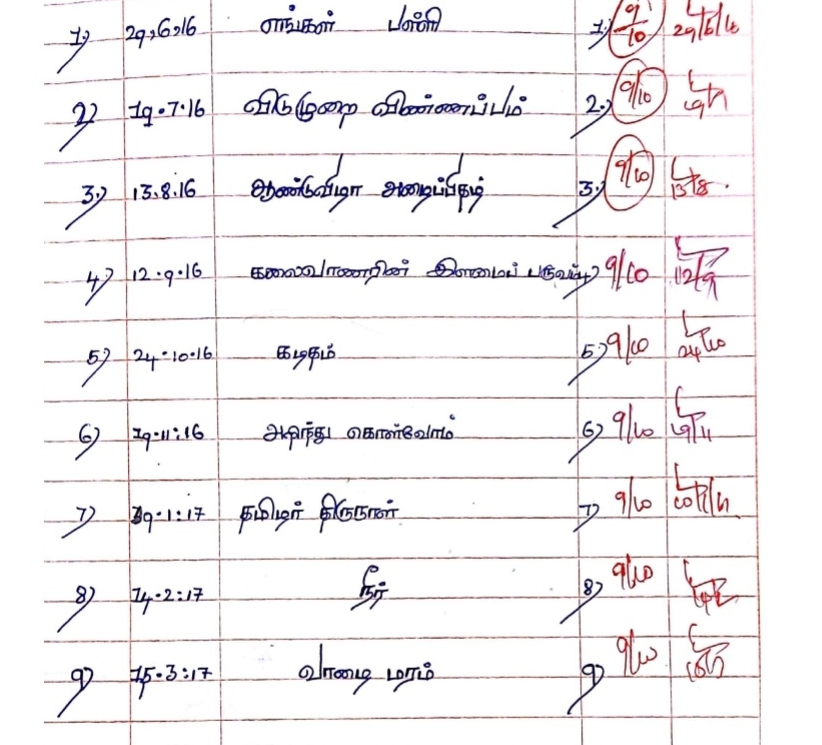 1) 29.6.16 எங்கள் பள்ளி 1) 9/10 29/6/16
2) 19.7.16 விடுமுறை விண்ணப்பம் 2.) 9/10
3.) 13.8.16 ஆண்டுவிழா அழைப்பிதழ் 3.) 9/10 13/8.
4) 12.9.16 கலைவாணரின் இளமைப் பருவம் 4) 9/10 12/9
5) 24.10.16 கடிதம் 5) 9/10 24/10
6) 19.11:16 அறிந்து கொள்வோம் 6) 9/10 19/11
7) 19.1:17 தமிழர் திருநாள் 7) 9/10
8) 14.2:17 நீர் 8) 9/10
9) 15.3:17 வாழை மரம் 9) 9/10